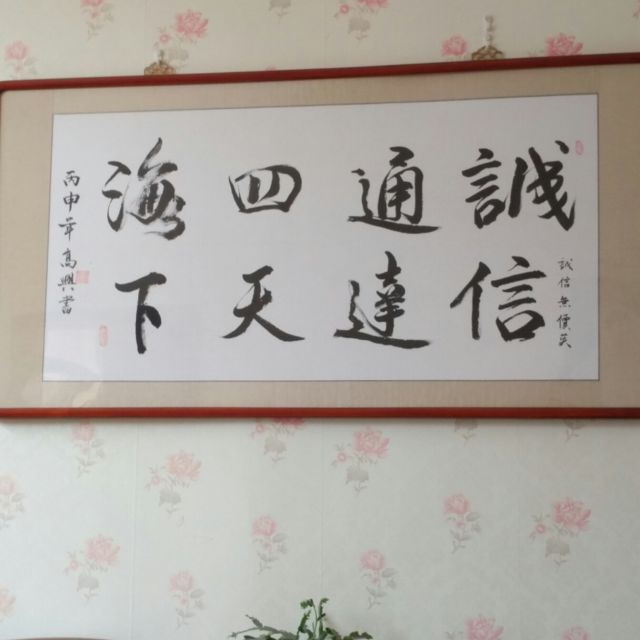 诚信無價
誠通四海
信達天下
丙申年高興書